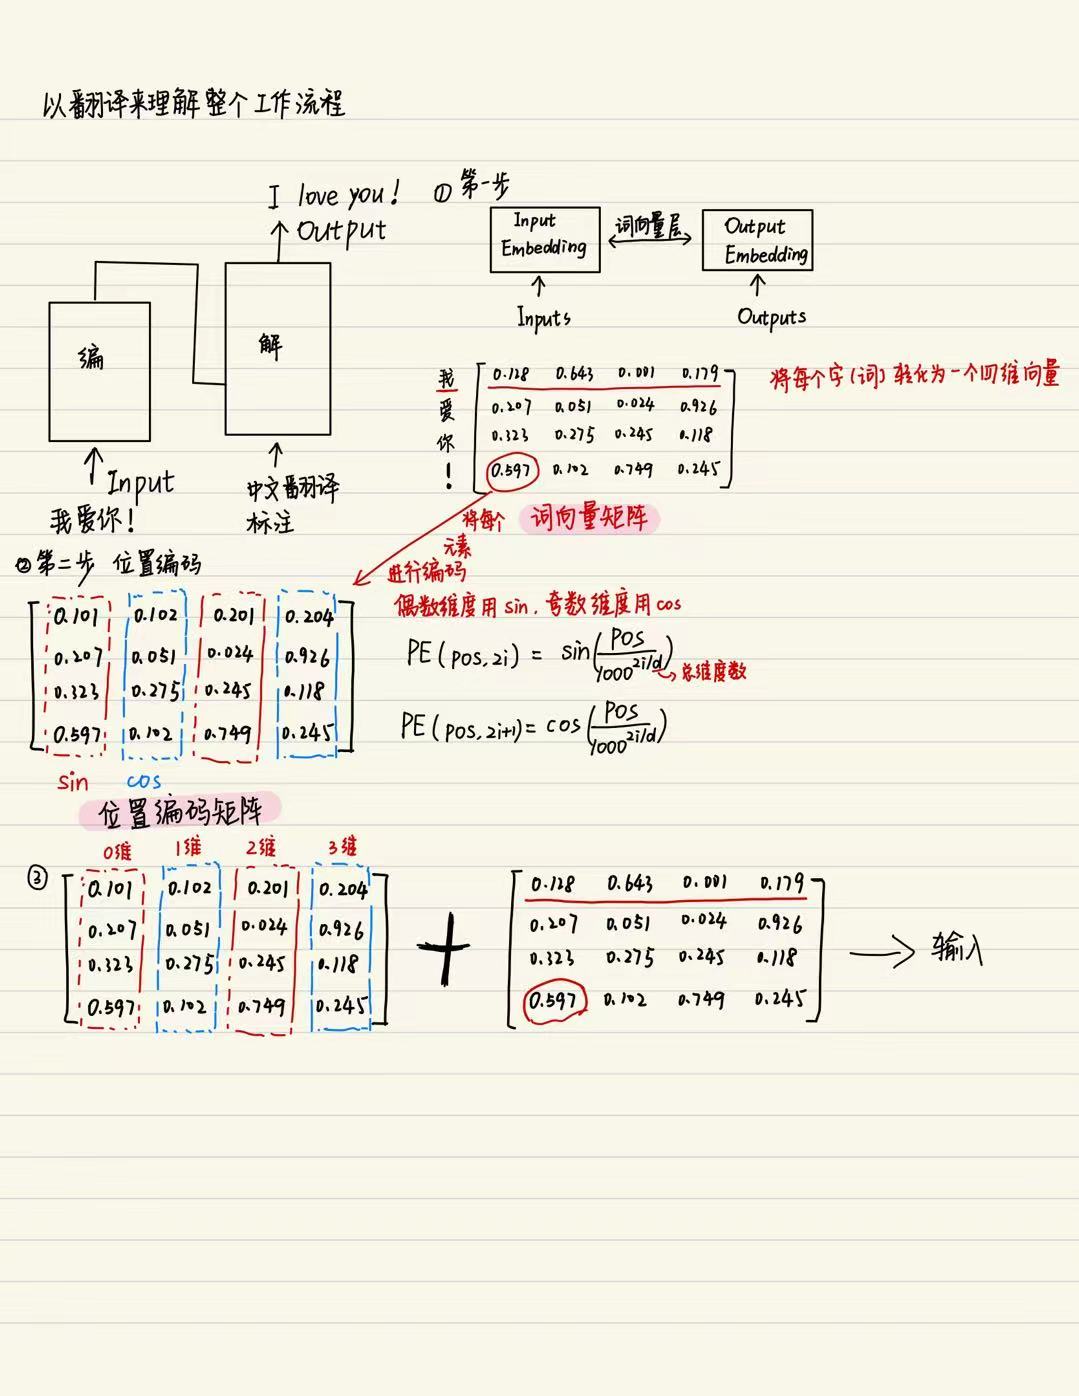 以翻译来理解整个工作流程
I love you!
Output
编
解
Input
我爱你!
中文翻译
标注
① 第一步
Input
Embedding
词向量层
Output
Embedding
Inputs
Outputs
我 0.128 0.643 0.001 0.179
爱 0.207 0.051 0.024 0.926
你 0.323 0.275 0.245 0.118
! 0.597 0.102 0.749 0.245
将每个字(词)转化为一个四维向量
词向量矩阵
将每个
元素
进行编码
② 第二步 位置编码
0.101 0.102 0.201 0.204
0.207 0.051 0.024 0.926
0.323 0.275 0.245 0.118
0.597 0.102 0.749 0.245
sin cos
偶数维度用sin,奇数维度用cos
PE(pos,2i) = sin(pos/1000^2i/d)
总维度数
PE(pos,2i+1) = cos(pos/1000^2i/d)
位置编码矩阵
③
0维 1维 2维 3维
0.101 0.102 0.201 0.204
0.207 0.051 0.024 0.926
0.323 0.275 0.245 0.118
0.597 0.102 0.749 0.245
+
0.128 0.643 0.001 0.179
0.207 0.051 0.024 0.926
0.323 0.275 0.245 0.118
0.597 0.102 0.749 0.245
输入